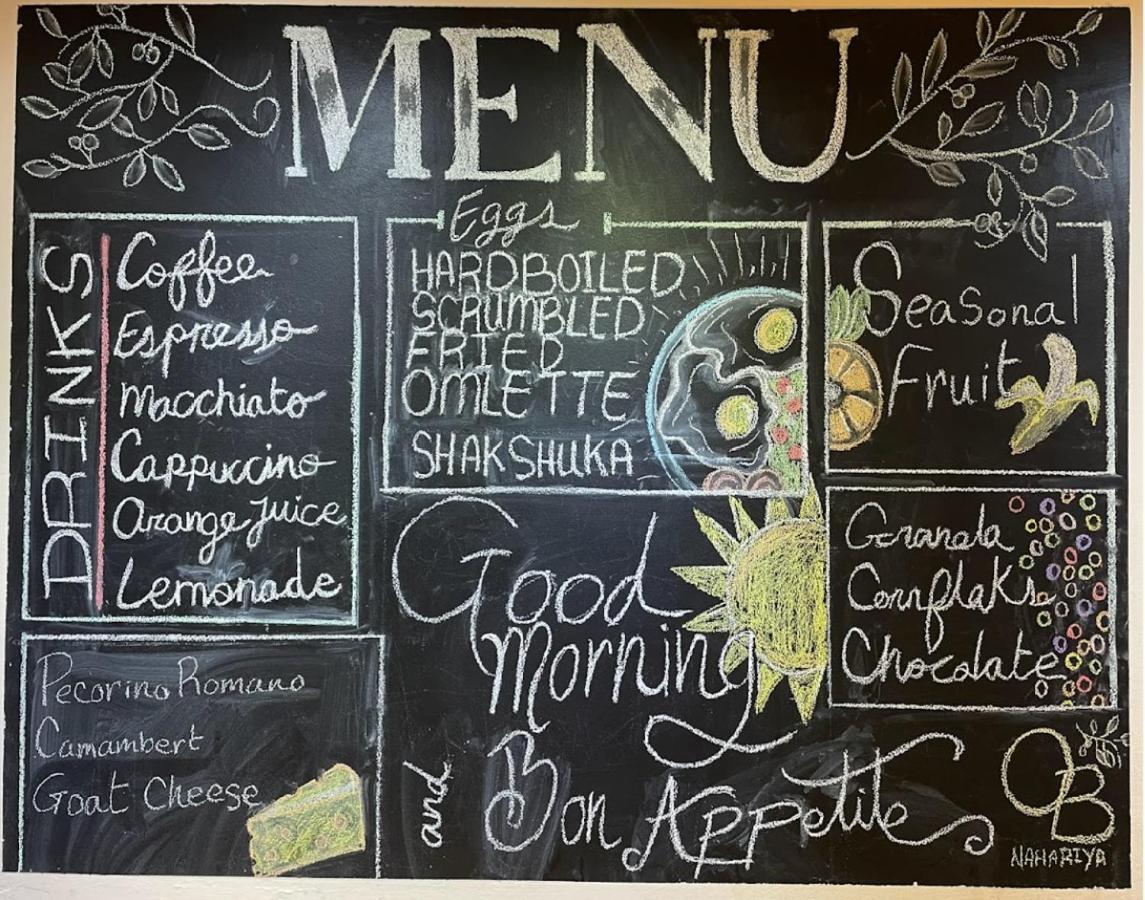 MENU
DRINKS
Coffee
Espresso
Macchiato
Cappuccino
Orange Juice
Lemonade
Pecorino Romano
Camambert
Goat Cheese
Eggs
HARDBOILED
SCRUMBLED
FRIED
OMLETTE
SHAKSHUKA
Good
Morning
and
Bon Appetite
Seasonal
Fruit
Granola
Cornflaks
Chocolate
OB
NAHARIYA